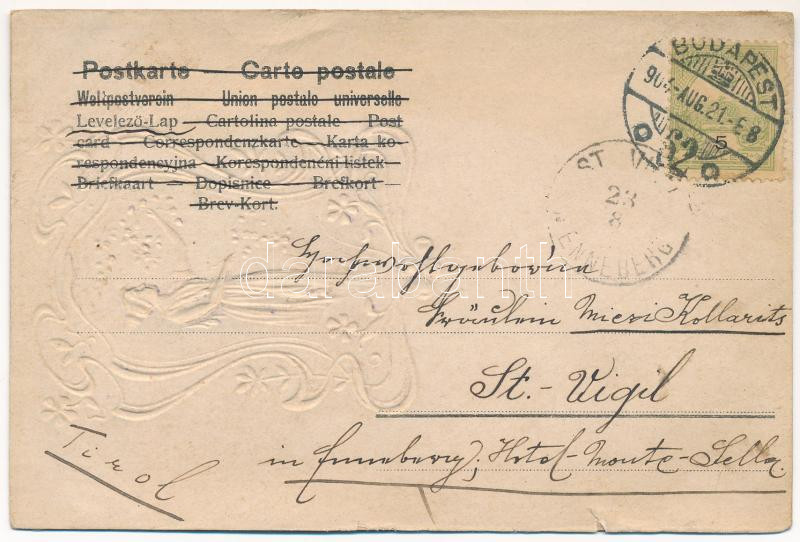 Postkarte — Carte postale
Weltpostverein — Union postale universelle
Levelezö-Lap — Cartolina postale — Post
card — Correspondenzkarte — Karta ko-
respondencyjna — Korespondenční listek —
Briefkaart — Dopisnice — Brefkort —
Brev-Kort.
BUDAPEST
904 AUG. 21. E. 8
62
5
ST. VIGIL
23
8
ENNEBERG
Hochwohlgeborene
Fräulein Miczi Kollarits
St. - Vigil
in Enneberg, Hotel - Monte - Sella.
Tirol
darabanth